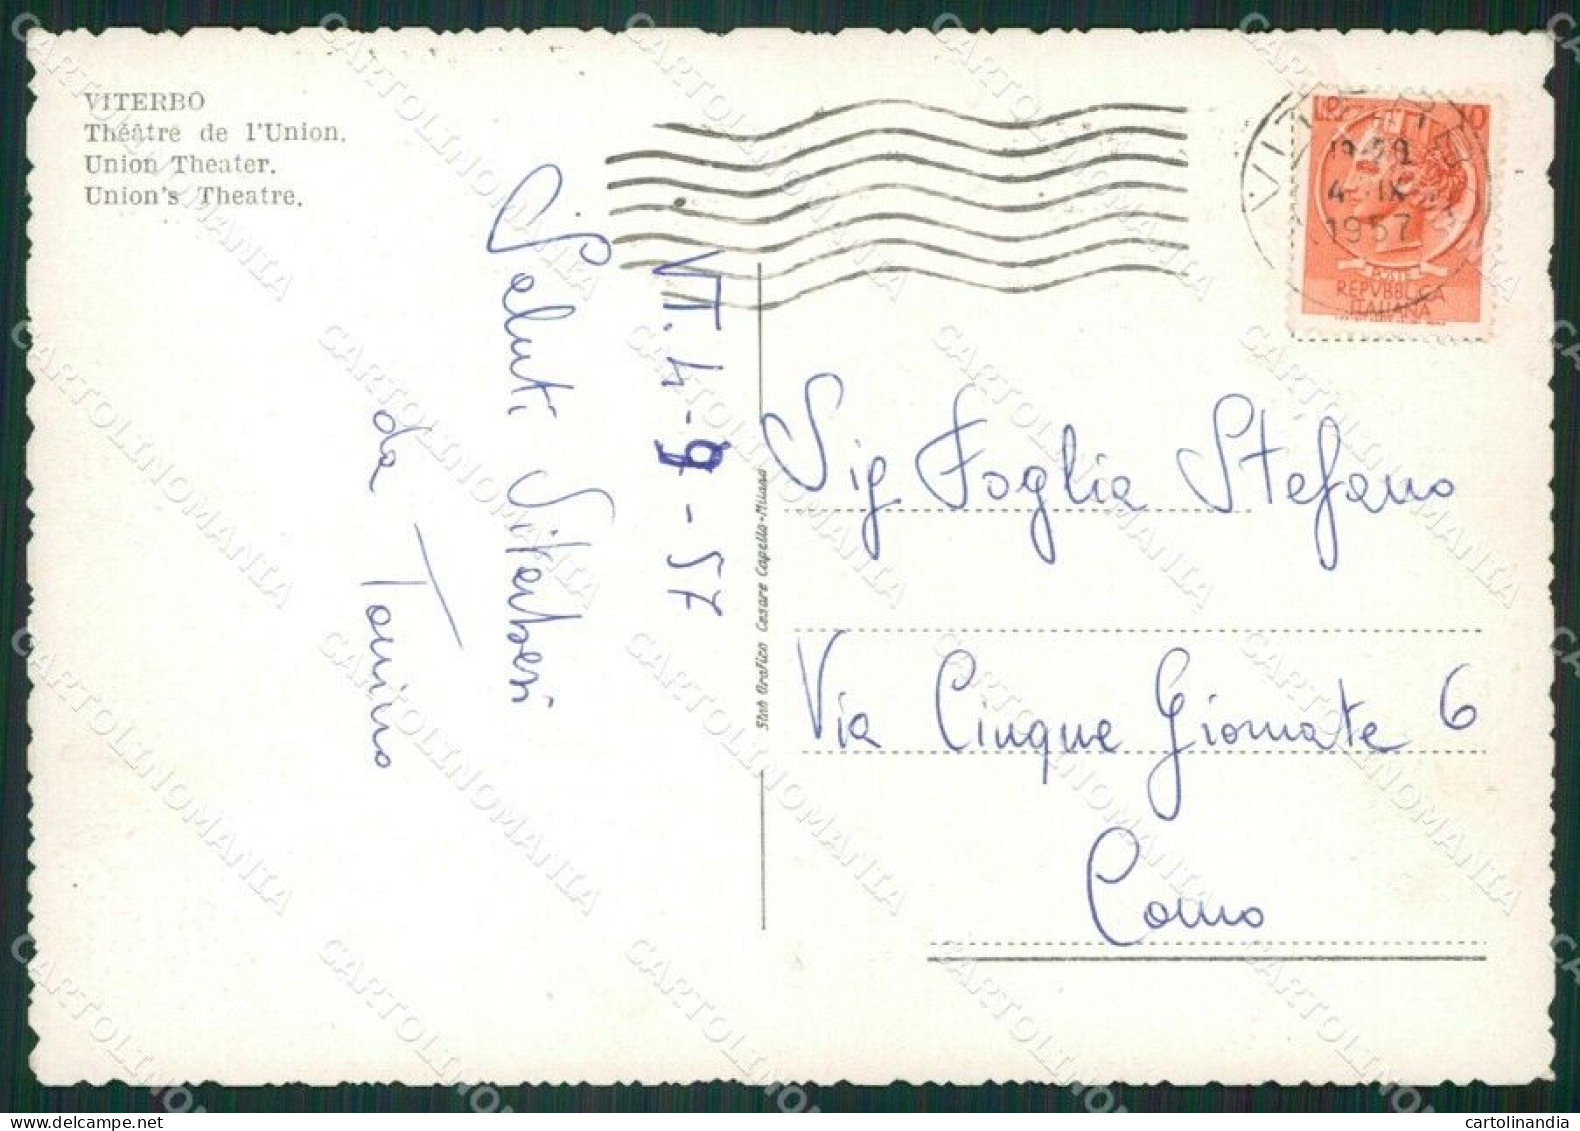 VITERBO
Théâtre de l'Union.
Union Theater.
Union's Theatre.
VT. 4-9-57
Saluti Viterbesi
da Tonino
Stab Grafico Cesare Capello-Milano
1957
POSTE
REPVBBLICA
ITALIANA
Sig Foglia Stefano
Via Cinque Giornate 6
Como
CARTOLINOMANIA
cartolinandia